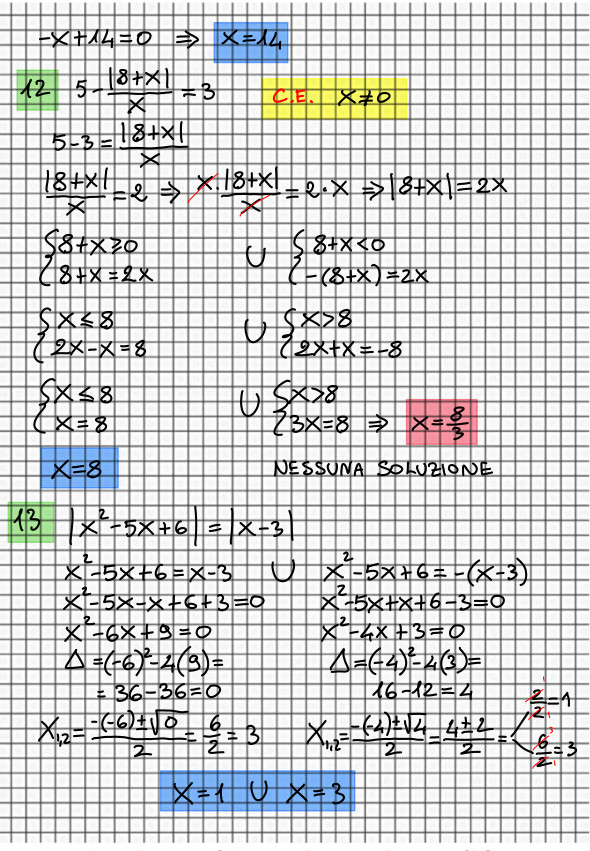 -x+14=0 ⇒ x=14
12 5-|8+x|/x = 3 C.E. x≠0
5-3 = |8+x|/x
|8+x|/x = 2 ⇒ x·|8+x|/x = 2·x ⇒ |8+x| = 2x
{8+x≥0 ∪ {8+x<0
{8+x=2x {-(8+x)=2x
{x≤8 ∪ {x>8
{2x-x=8 {2x+x=-8
{x≤8 ∪ {x>8
{x=8 {3x=8 ⇒ x=8/3
x=8 NESSUNA SOLUZIONE
13 |x²-5x+6| = |x-3|
x²-5x+6=x-3 ∪ x²-5x+6=-(x-3)
x²-5x-x+6+3=0 x²-5x+x+6-3=0
x²-6x+9=0 x²-4x+3=0
Δ=(-6)²-4(9)= Δ=(-4)²-4(3)=
=36-36=0 16-12=4
x1,2=-(-6)±√0/2=6/2=3 x1,2=-(-4)±√4/2=4±2/2= 2/2=1 6/2=3
x=1 ∪ x=3